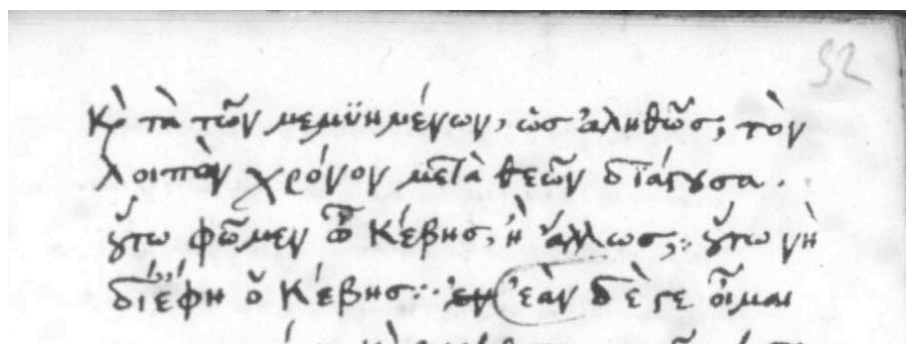 52
κὰ τὰ τῶν μεμϋημένων, ὡς ἀληθῶς, τὸν
λοιπὸν χρόνον μετὰ θεῶν διάγουσα.
οὕτω φῶμεν ὦ Κέβης, ἢ ἄλλως; οὕτω νὴ
δί ἔφη ὁ Κέβης: ἐὰν δὲ γε οἶμαι